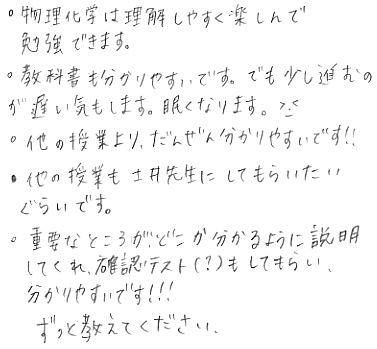 。物理化学は理解しやすく楽しんで
勉強できます。
。教科書も分かりやすいです。でも少し進むの
が遅い気もします。眠くなります。>.<
。他の授業より、だんぜん分かりやすいです!!
• 他の授業も 土井先生に してもらいたい
ぐらいです。
。重要なところが、どこか分かるように説明
してくれ、確認テスト(?)もしてもらい、
分かりやすいです!!!
ずっと教えてください。